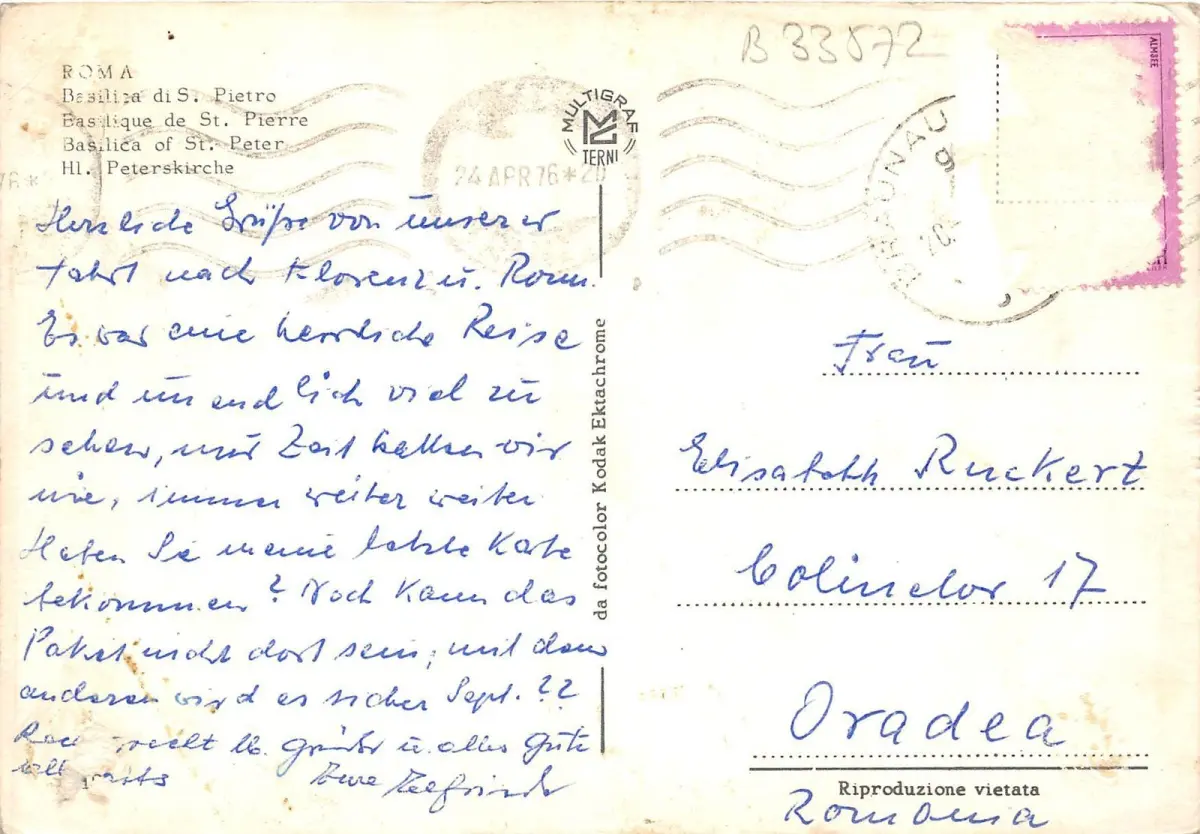 B 33572
ROMA
Basilica di S. Pietro
Basilique de St. Pierre
Basilica of St. Peter
Hl. Peterskirche
MULTIGRAF
TERNI
24 APR 76 * 20
BRAUNAU
ALMSEE
Herzliche Grüße von unserer
Fahrt nach Florenz u. Rom.
Es war eine herrliche Reise
und unendlich viel zu
sehen, nur Zeit hatten wir
nie, immer weiter weiter
Haben Sie meine letzte Karte
bekommen? Noch kann das
Paket nicht dort sein, mit dem
anderen wird es sicher Sept. ??
recht lb. Grüße u. alles Gute
Ihre
da fotocolor Kodak Ektachrome
Frau
Elisabeth Ruckert
Colinelor 17
Oradea
Riproduzione vietata
Romania